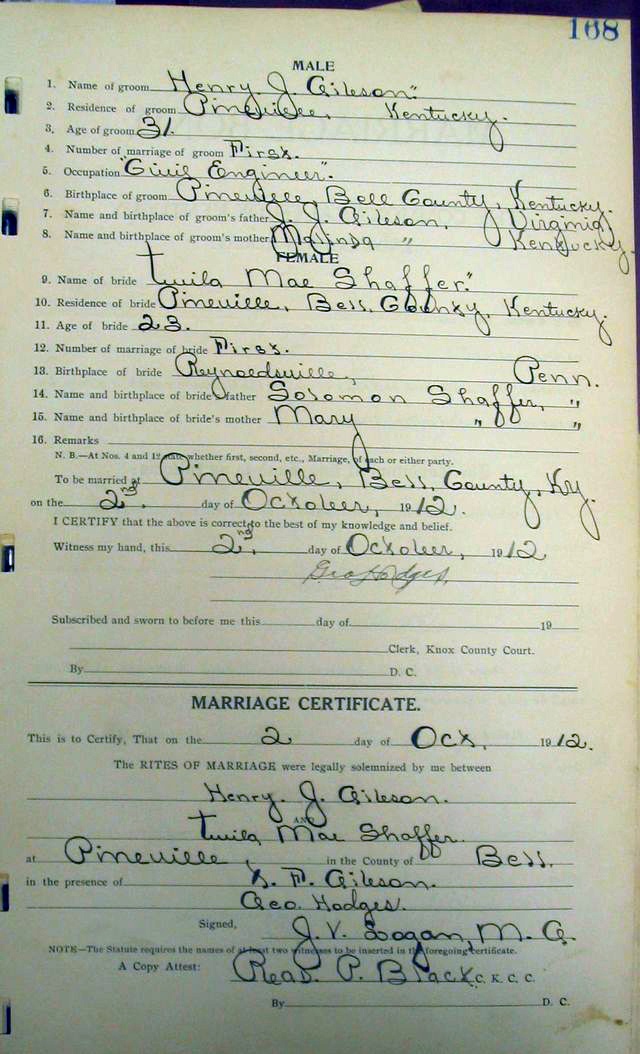 168
MALE
1. Name of groom Henry. J. Gibson."
2. Residence of groom Pineville, Kentucky.
3. Age of groom 31.
4. Number of marriage of groom First.
5. Occupation "Civil Engineer".
6. Birthplace of groom Pineville, Bell County, Kentucky.
7. Name and birthplace of groom's father J. J. Gibson, Virginia,
8. Name and birthplace of groom's mother Malinda " Kentucky.
FEMALE
9. Name of bride Twila Mae Shaffer."
10. Residence of bride Pineville, Bell County, Kentucky.
11. Age of bride 23.
12. Number of marriage of bride First.
13. Birthplace of bride Reynoldsville, Penn.
14. Name and birthplace of bride's father Solomon Shaffer, "
15. Name and birthplace of bride's mother Mary " "
16. Remarks
N. B.—At Nos. 4 and 12 state whether first, second, etc., Marriage, of each or either party.
To be married at Pineville, Bell County, Ky.
on the 2nd. day of October, 1912.
I CERTIFY that the above is correct to the best of my knowledge and belief.
Witness my hand, this 2nd. day of October, 1912
Geo Hodges.
Subscribed and sworn to before me this day of 19
Clerk, Knox County Court.
By D. C.
MARRIAGE CERTIFICATE.
This is to Certify, That on the 2 day of Oct, 1912.
The RITES OF MARRIAGE were legally solemnized by me between
Henry. J. Gibson.
AND
Twila Mae Shaffer.
at Pineville, in the County of Bell.
in the presence of F. Gibson.
Geo. Hodges.
Signed, J. V. Logan, M. G.
NOTE—The Statute requires the names of at least two witnesses to be inserted in the foregoing certificate.
A Copy Attest: Read. P. Black, C. K. C. C.
By D. C.